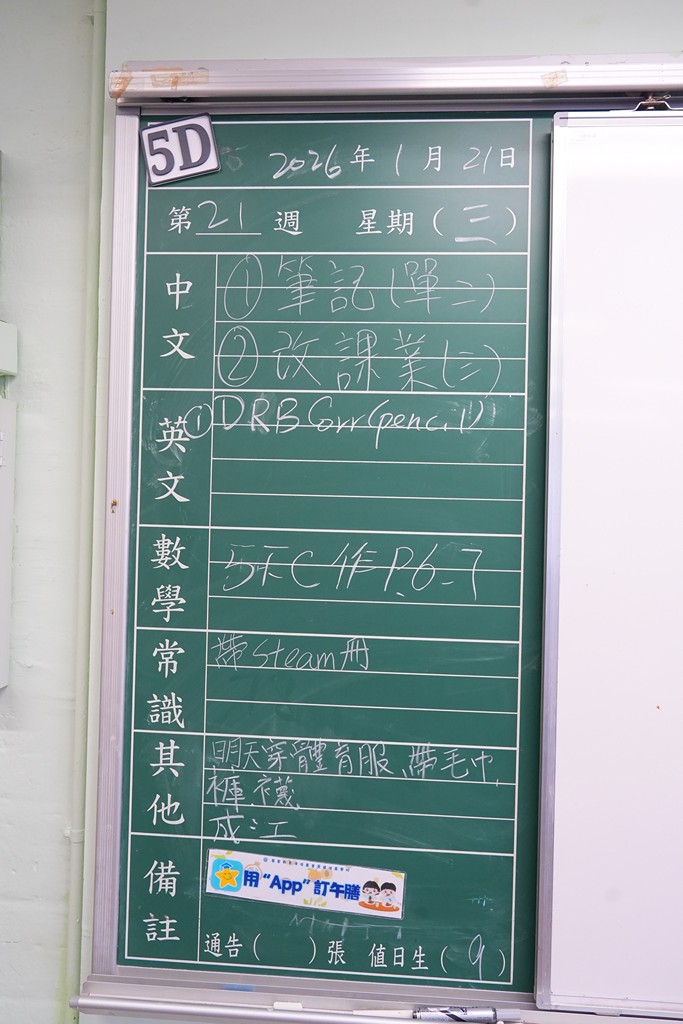 5D
2026年1月21日
第21週 星期(三)
中文
①筆記(單二)
②改課業(三)
英文
①DRB Corr(pencil)
數學
5下C作P.6-7
常識
帶Steam冊
其他
明天穿體育服、帶毛巾,
褲襪
備註
用“App”訂午膳
通告( )張 值日生(9)